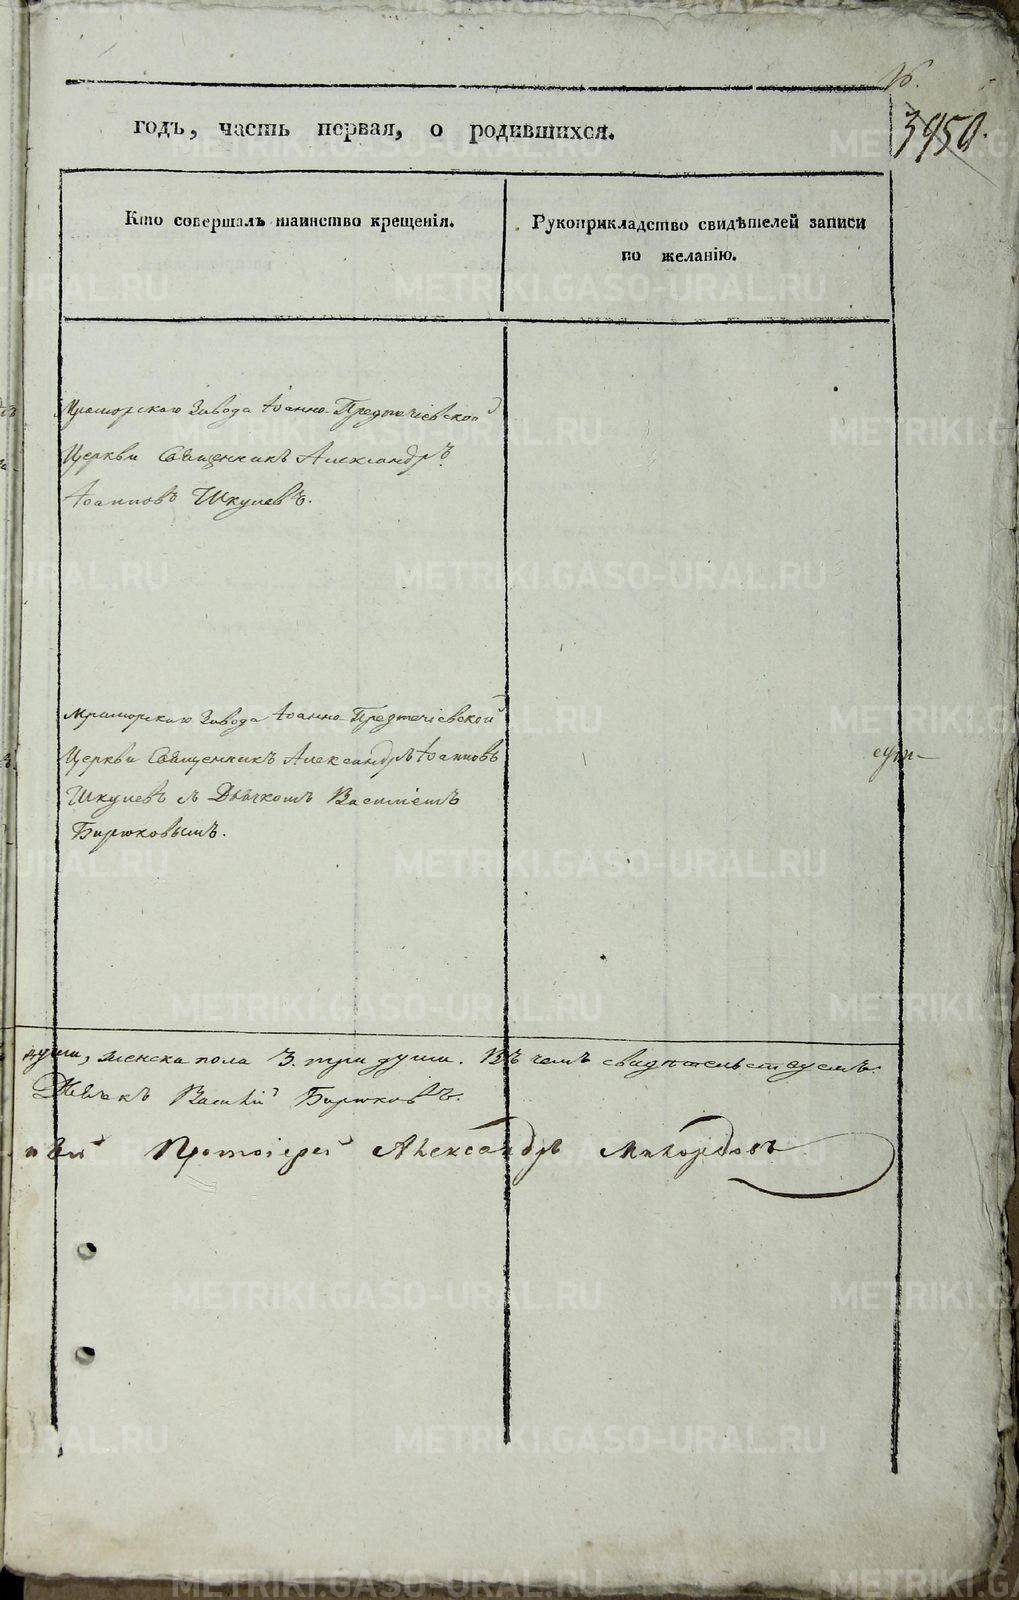 годъ, часть первая, о родившихся.
3950.
Кто совершалъ таинство крещенія.
Рукоприкладство свидѣтелей записи
по желанію.
Мраморскаго Завода Іоанно-Предтечіевской
Церкви Священникъ Александръ
Іоанновъ Шкулевъ.
Мраморскаго Завода Іоанно-Предтечіевской
Церкви Священникъ Александръ Іоанновъ
Шкулевъ съ Дьячкомъ Василіемъ
Бирюковымъ.
души, женска пола 3. три души. Въ чемъ свидѣтельствуемъ.
Дьячекъ Василій Бирюковъ.
Протоіерей Александръ
METRIKI.GASO-URAL.RU